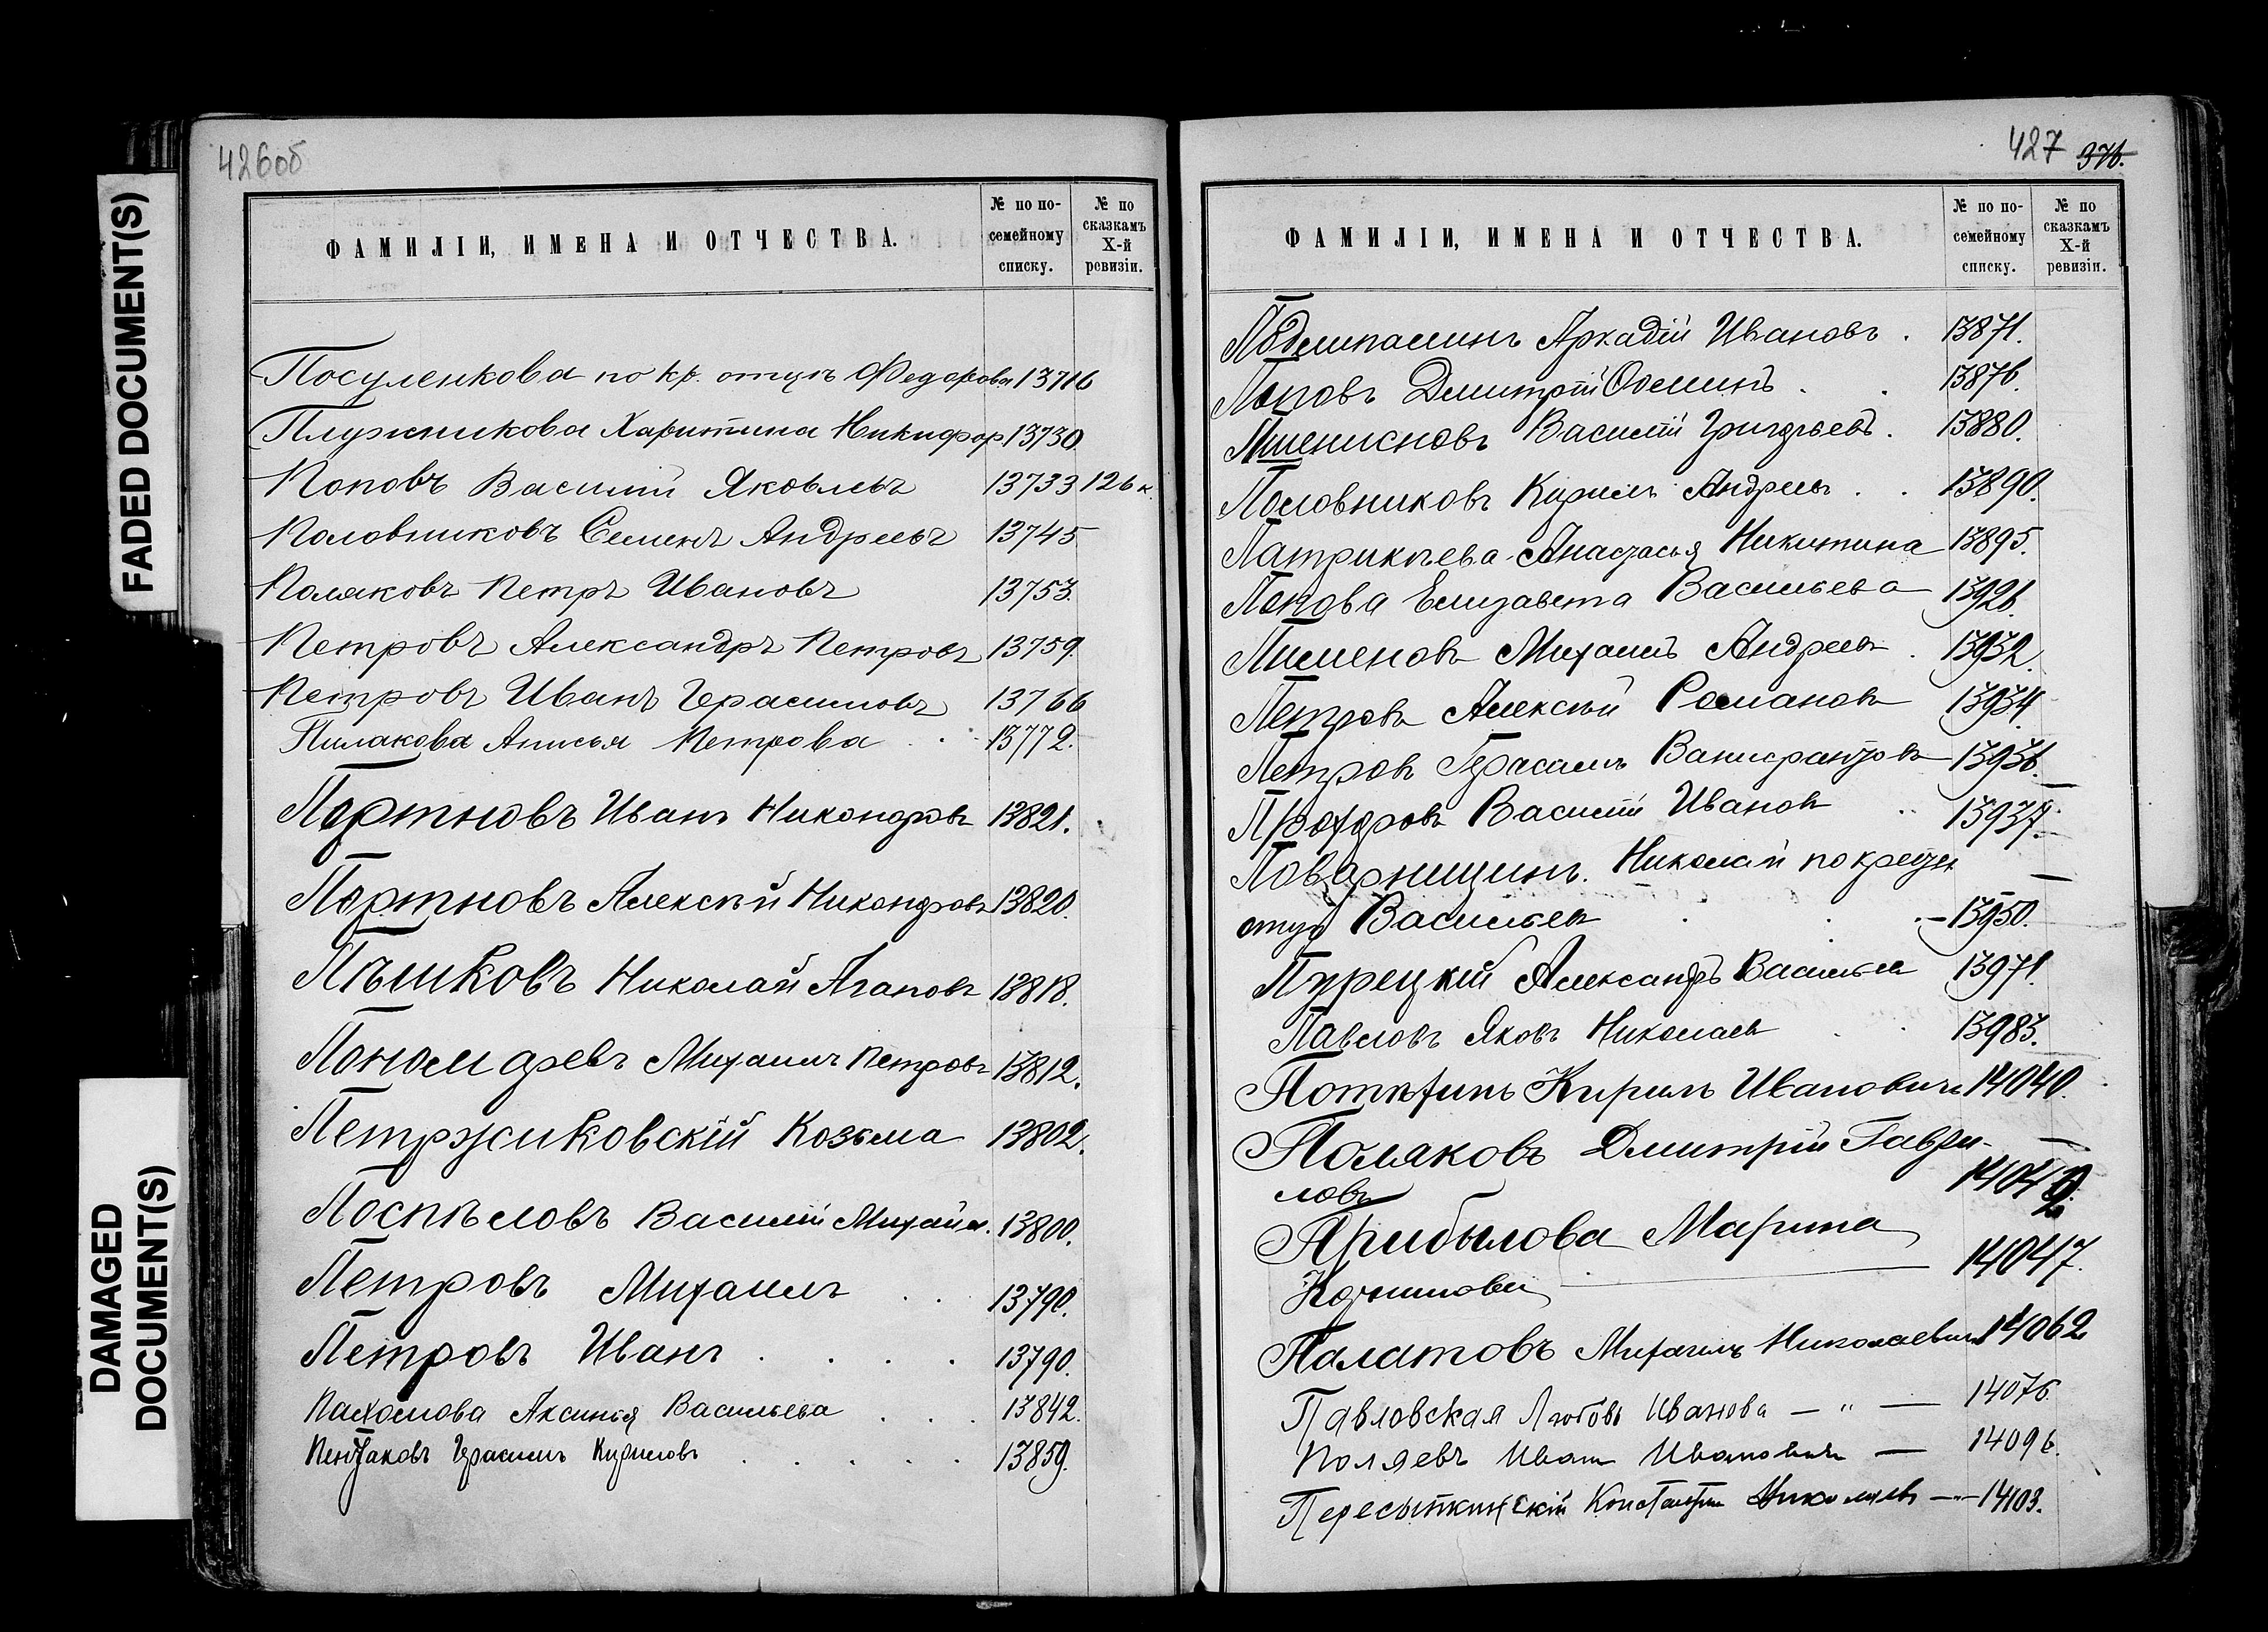 FADED DOCUMENT(S)
DAMAGED
DOCUMENT(S)
426об
ФАМИЛІИ, ИМЕНА И ОТЧЕСТВА.
№ по по-
семейному
списку.
№ по
сказкамъ
X-й
ревизіи.
Посуленкова по кр. отцѣ Федорова 13716
Плужникова Харитина Никифор. 13730
Поповъ Василій Яковлевъ 13733 126 к.
Половниковъ Семенъ Андреевъ 13745
Поляковъ Петръ Ивановъ 13753.
Петровъ Александръ Петровъ 13759.
Петровъ Иванъ Герасимовъ 13766
Пилакова Анисья Петрова . . 13772.
Портновъ Иванъ Никандровъ 13821.
Портновъ Алексѣй Никандровъ 13820.
Пѣшковъ Николай Агаповъ 13818.
Пономаревъ Михаилъ Петровъ 13812.
Петржиковскій Козьма 13802.
Поспѣловъ Василій Михайл. 13800.
Петровъ Михаилъ . . 13790.
Петровъ Иванъ . . . . 13790.
Пахомова Аксинья Васильева . . . 13842.
Герасимъ Кириловъ . . . . . 13859.
427 376.
ФАМИЛІИ, ИМЕНА И ОТЧЕСТВА.
№ по по-
семейному
списку.
№ по
сказкамъ
X-й
ревизіи.
Подлипалинъ Аркадій Ивановъ . 13871.
Поповъ Дмитрій . . 13876.
Василій Григорьевъ . 13880.
Половниковъ Кирилъ Андреевъ . . 13890.
Патрикѣева Анастасья Никитина 13895.
Попова Елизавета Васильева 13926
Пименовъ Михаилъ Андреевъ . 13932.
Петровъ Алексѣй Романовъ 13934
Петровъ Герасимъ 13936.
Прохоровъ Василій Ивановъ . . 13937.
Поварницинъ. Николай по крещен
отцу Васильевъ . . . 13950.
Пурецкій Александръ Васильевъ 13971.
Павловъ Яковъ Николаевъ . . 13983.
Потѣхинъ Кирилъ Ивановичъ 14040.
Поляковъ Дмитрій Гаври-
ловъ 14042.
Прибылова Марина
14047.
Палатовъ Михаилъ Николаевичъ 14062
Павловская Любовь Иванова — " — 14076.
Поляевъ Иванъ Ивановичъ — 14096.
Константинъ Николаевъ — 14103.